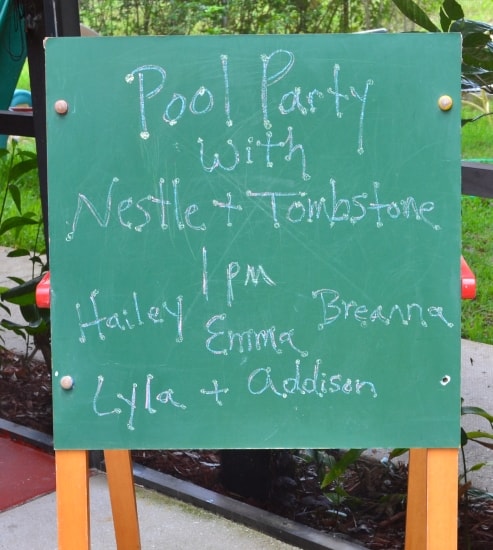 Pool Party
with
Nestle + Tombstone
1 pm
Hailey Breanna
Emma
Lyla + Addison